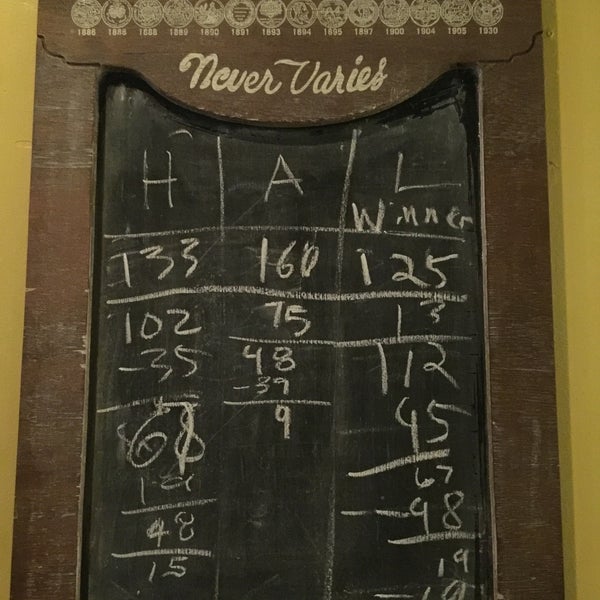 1886 1886 1888 1889 1890 1891 1893 1894 1895 1897 1900 1904 1905 1930
Never Varies
H A L
Winner
133 160 125
102 75 13
-35 48 112
-39
9 45
67
48 -48
15 19